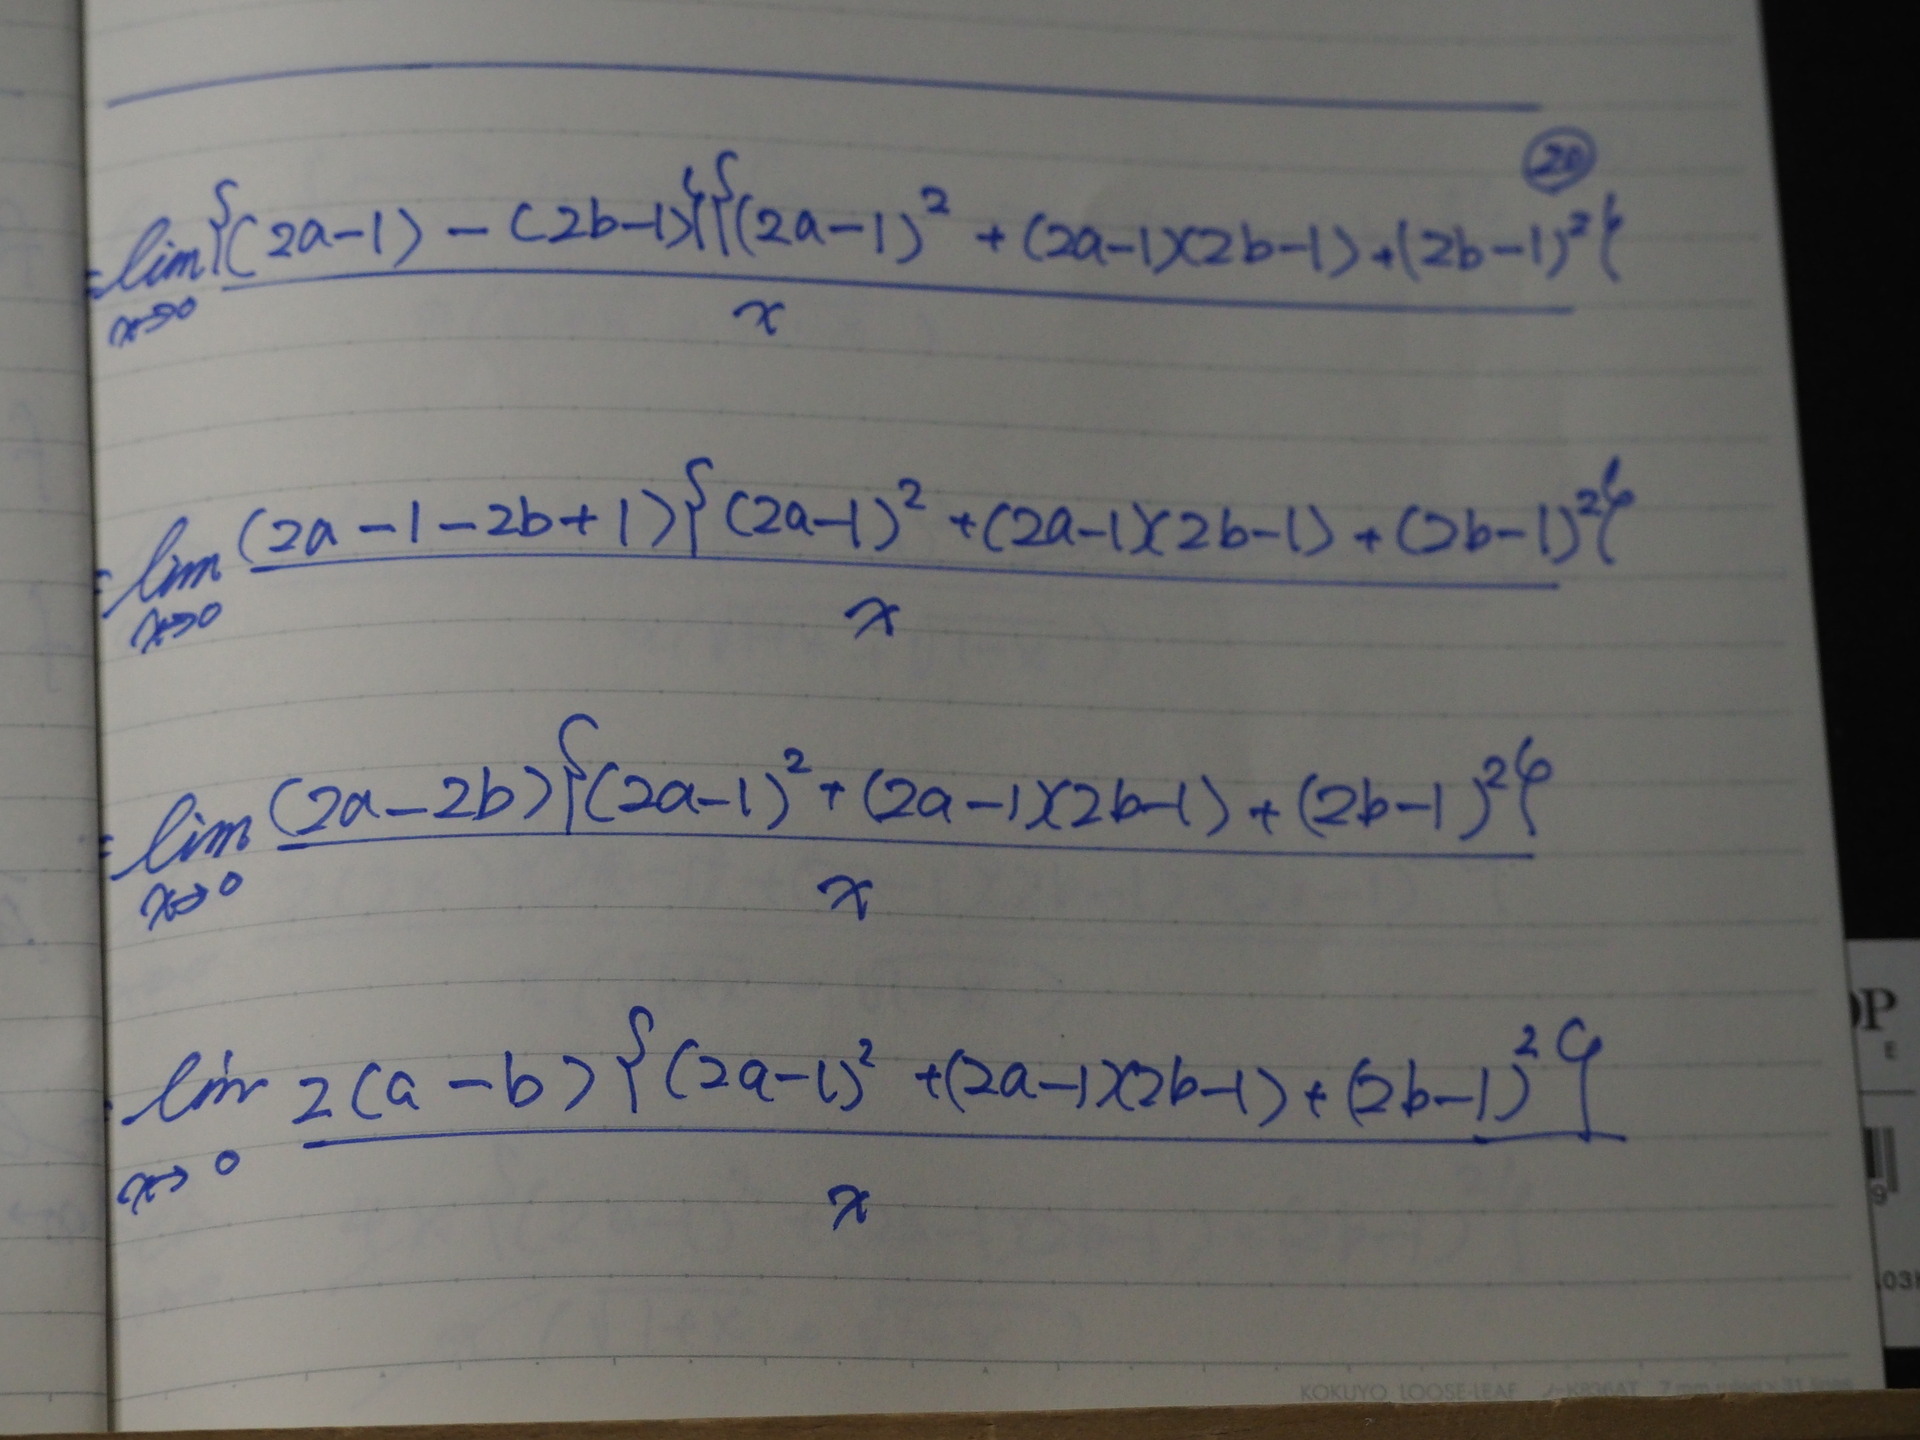 ⑳
= lim {(2a-1) - (2b-1)}{(2a-1)² + (2a-1)(2b-1) + (2b-1)²}
x→0 x
= lim (2a-1-2b+1){(2a-1)² + (2a-1)(2b-1) + (2b-1)²}
x→0 x
= lim (2a-2b){(2a-1)² + (2a-1)(2b-1) + (2b-1)²}
x→0 x
= lim 2(a-b){(2a-1)² + (2a-1)(2b-1) + (2b-1)²}
x→0 x
OP
E
9
KOKUYO LOOSE-LEAF